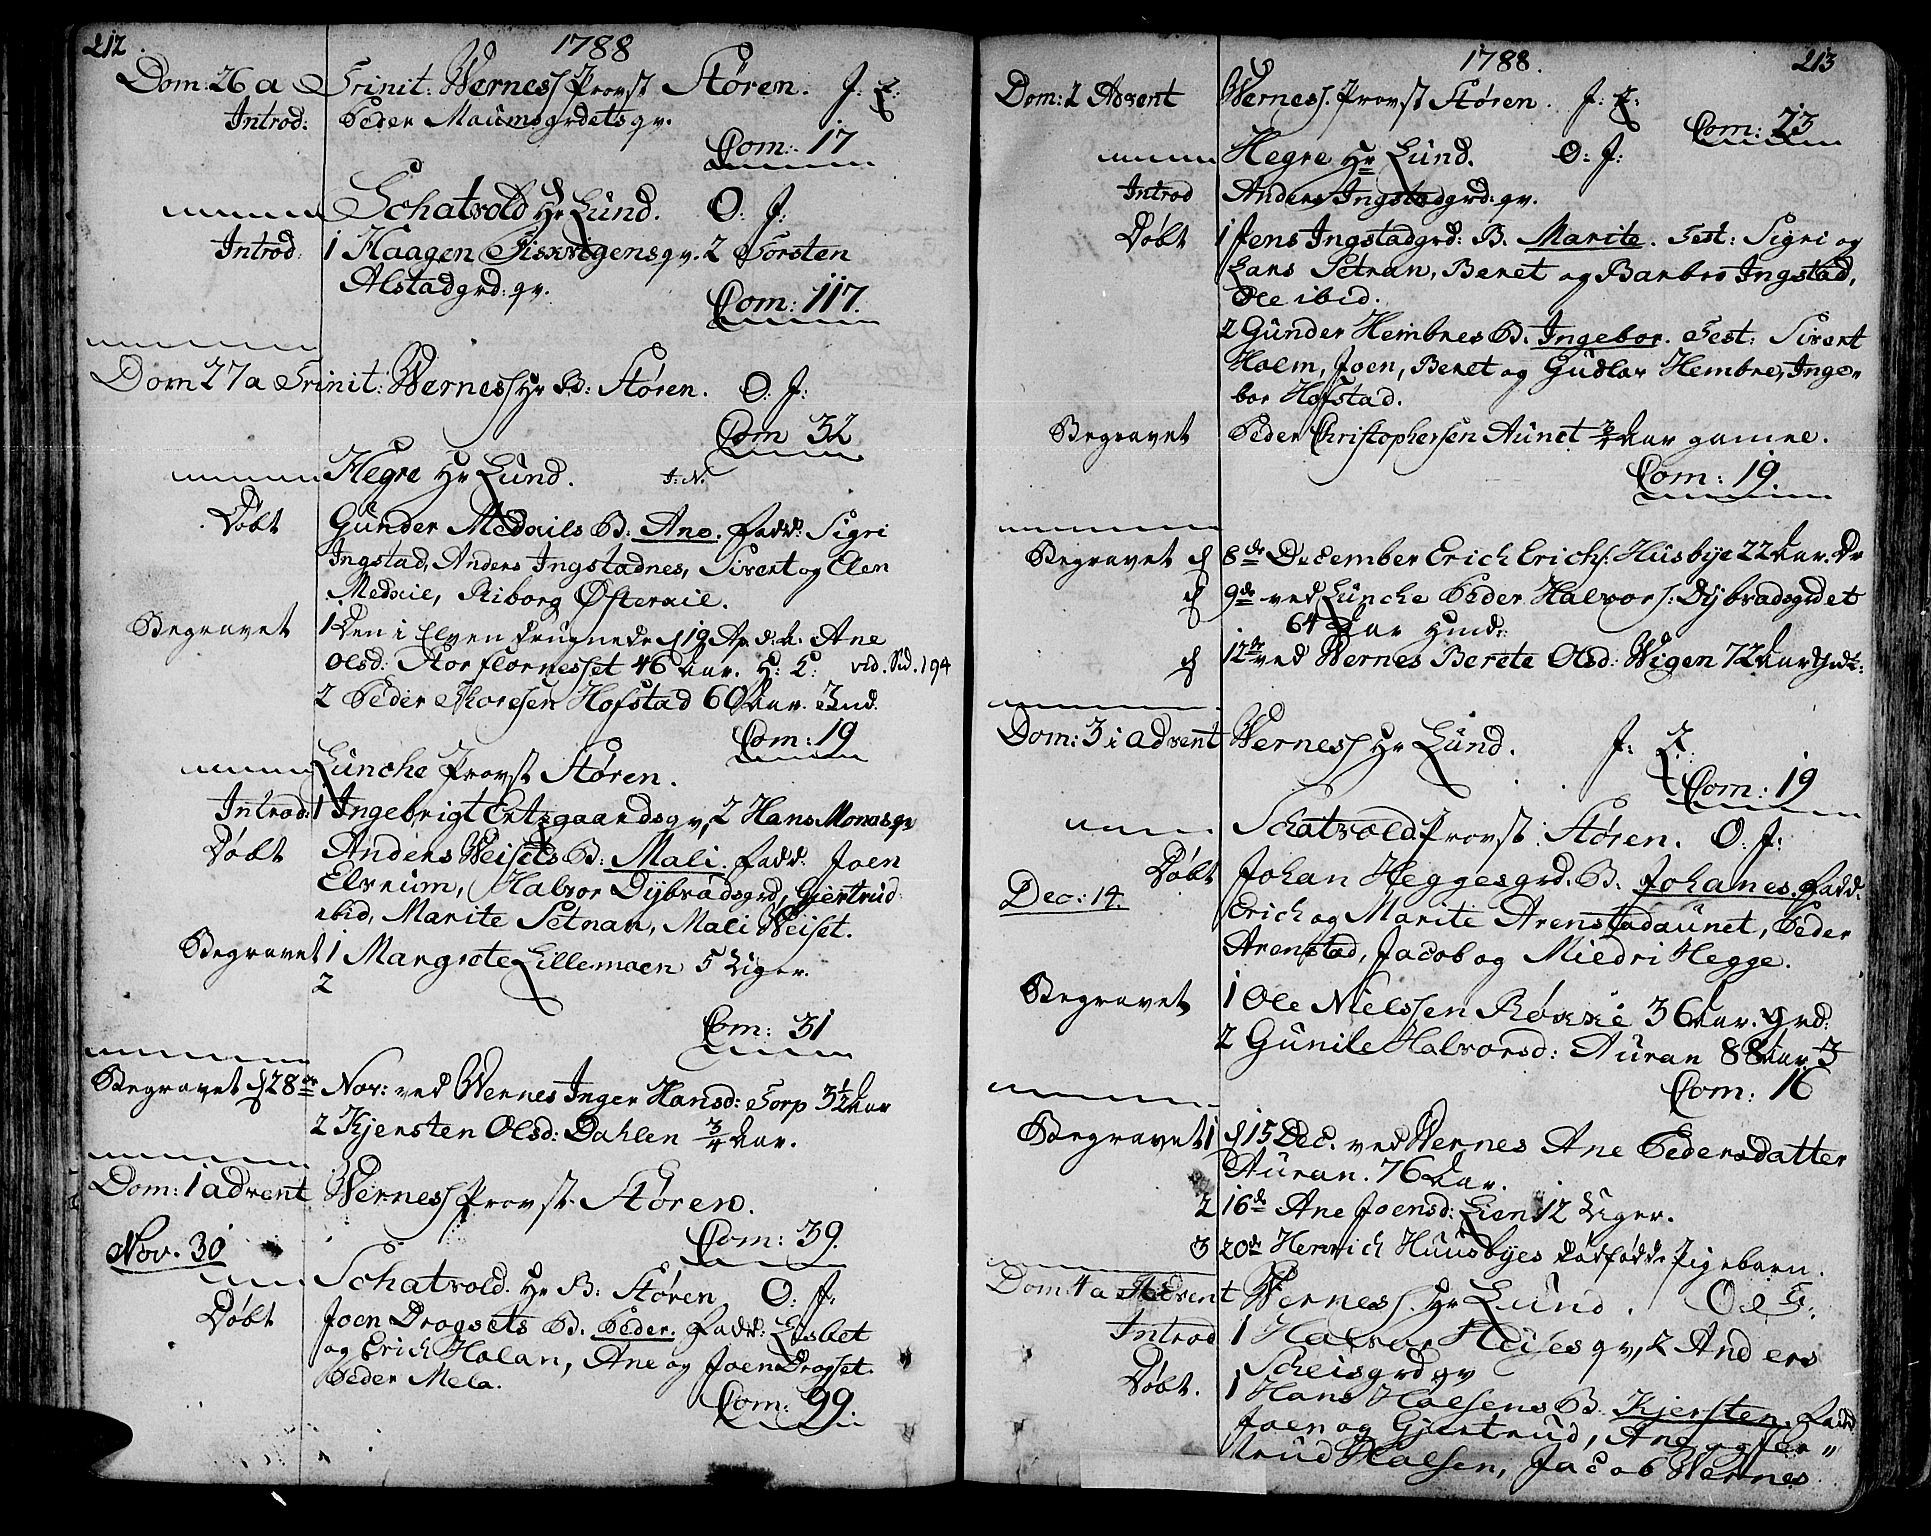 212. 1788
Dom: 26 a Trinit: Wernes Provst Støren. J: L:
Introd: Peder Maumsgrdets qv.
Com: 17
Schatvold Hr Lund. O: J:
Introd: 1 Haagen Fiskvigens qv. 2 Torsten
Alstadgrd: qv.
Com: 117.
Dom 27 a Trinit: Wernes Hr B: Støren. O: J:
Com 32
Hegre Hr Lund. J: N.
Døbt Gunder Medails B: Ane. Fadd: Sigri
Ingstad, Anders Ingstadnes, Sivert og Elen
Medaie, Riborg Østeraie.
Begravet 1 Den i Elven druknede d 19 Ane
Olsd: Storflornesset 46 Aar. H: L: vid. Sid. 194
2 Peder Thoresen Hofstad 60 Aar. Ind.
Com: 19
Luncke Provst Støren.
Introd: 1 Ingebrigt Ertzgaards qv, 2 Hans Monas qv
Døbt Anders Weisets B: Mali. Fadd: Joen
Elvrum, Halvor Dybvadsgrd, Gjertrud
ibid, Marite Setnan, Mali Weiset.
Begravet 1 Margrete Lillemoen 5 Uger.
2
Com: 31
Begravet d 28de Nov: ved Wernes Inger Hansd: Torp 3½ Aar
2 Kjersten Olsd: Dahlen ¾ Aar.
Dom: 1 advent Wernes Provst Støren.
Com: 39.
Nov. 30
Schatvold. Hr B: Støren O: J:
Døbt Joen Drogsets B. Peder. Fadd: Lisbet
og Erich Holan, Ane og Joen Drogset
Peder Mela.
Com: 99.
1788. 213
Dom: 2 Advent Wernes. Provst Støren. J: L:
Com: 23
Hegre Hr Lund. O: J:
Introd Anders Ingstadgrd: qv.
Døbt 1 Jens Ingstadgrd: B. Marite. Test: Sigri og
Lars Setnan, Beret og Barbro Ingstad,
Ole ibid.
2 Gunder Hembres B. Ingebor. Test: Sivert
Holm, Joen, Beret og Gudlav Hembre, Inge-
bor Hofstad.
Begravet Peder Christophersen Aunet Aar gamel.
Com: 19.
Begravet d 8de December Erich Erichs: Husbye 22 Aar.
d 9de ved Luncke Peder Halvors: Dybvadsgrdet
64 Aar Hind:
d 12te ved Wernes Berete Olsd: Wigen 72 Aar
Dom: 3 i advent Wernes Hr Lund. J:
Com: 19
Schatvold Provst Støren. O: J:
Døbt Johan Heggesgrd. B. Johanes. Fadd.
Dec: 14.
Erich og Marite Arenstadaunet, Peder
Arenstad, Jacob og Miedri Hegge.
Begravet 1 Ole Nielssen Røkke 36 Aar. Grd:
2 Gunile Halvorsd: Auran 88 Aar 3
Com: 16
Begravet 1 d 15 Dec. ved Wernes Ane Pedersdatter
Auran. 76 Aar.
2 16de Ane Joensd: Lien 12 Uger.
3 20de Henrich Huusbyes dødfødde Pigebarn.
Dom: 4 a Advent Wernes. Hr Lund.
Introd 1 Halvor qv, 2 Anders
Scheisgrd qv
Døbt. 1 Hans Halsens B. Kjersten. Fadd
Joen og Gjertrud, Ane og Jer-
trud Halsen, Jacob Wernes